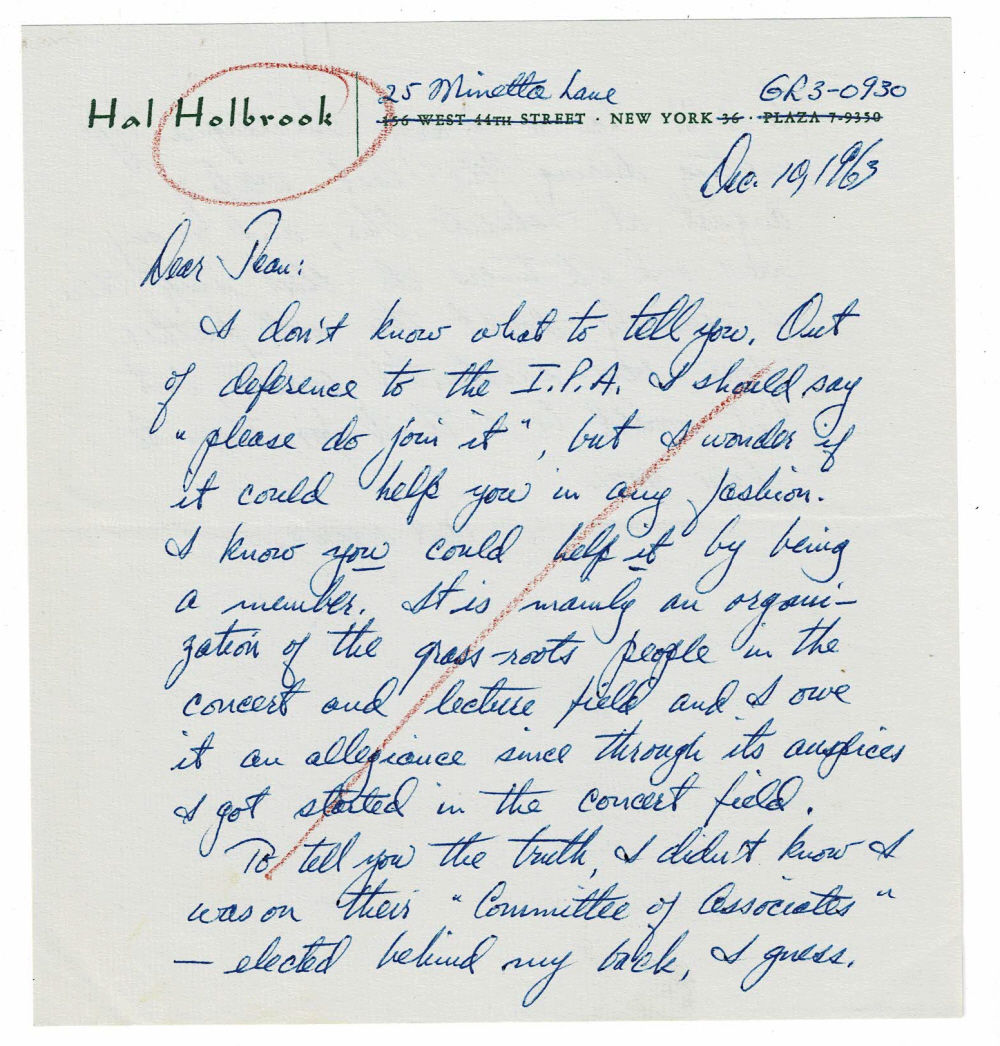 Hal Holbrook
25 Minetta Lane GR3-0930
156 WEST 44TH STREET · NEW YORK 36 · PLAZA 7-9350
Dec. 10, 1963
Dear Jean:
I don't know what to tell you. Out
of deference to the I.P.A. I should say
"please do join it", but I wonder if
it could help you in any fashion.
I know you could help it by being
a member. It is mainly an organi-
zation of the grass-roots people in the
concert and lecture field and I owe
it an allegiance since through its auspices
I got started in the concert field.
To tell you the truth, I didn't know I
was on their "Committee of Associates"
— elected behind my back, I guess.